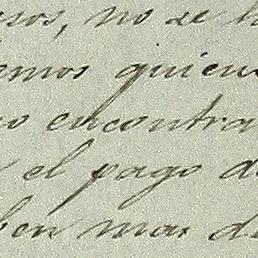 sos, no se h
emos quien
o encontra
el pago d
ben mas di